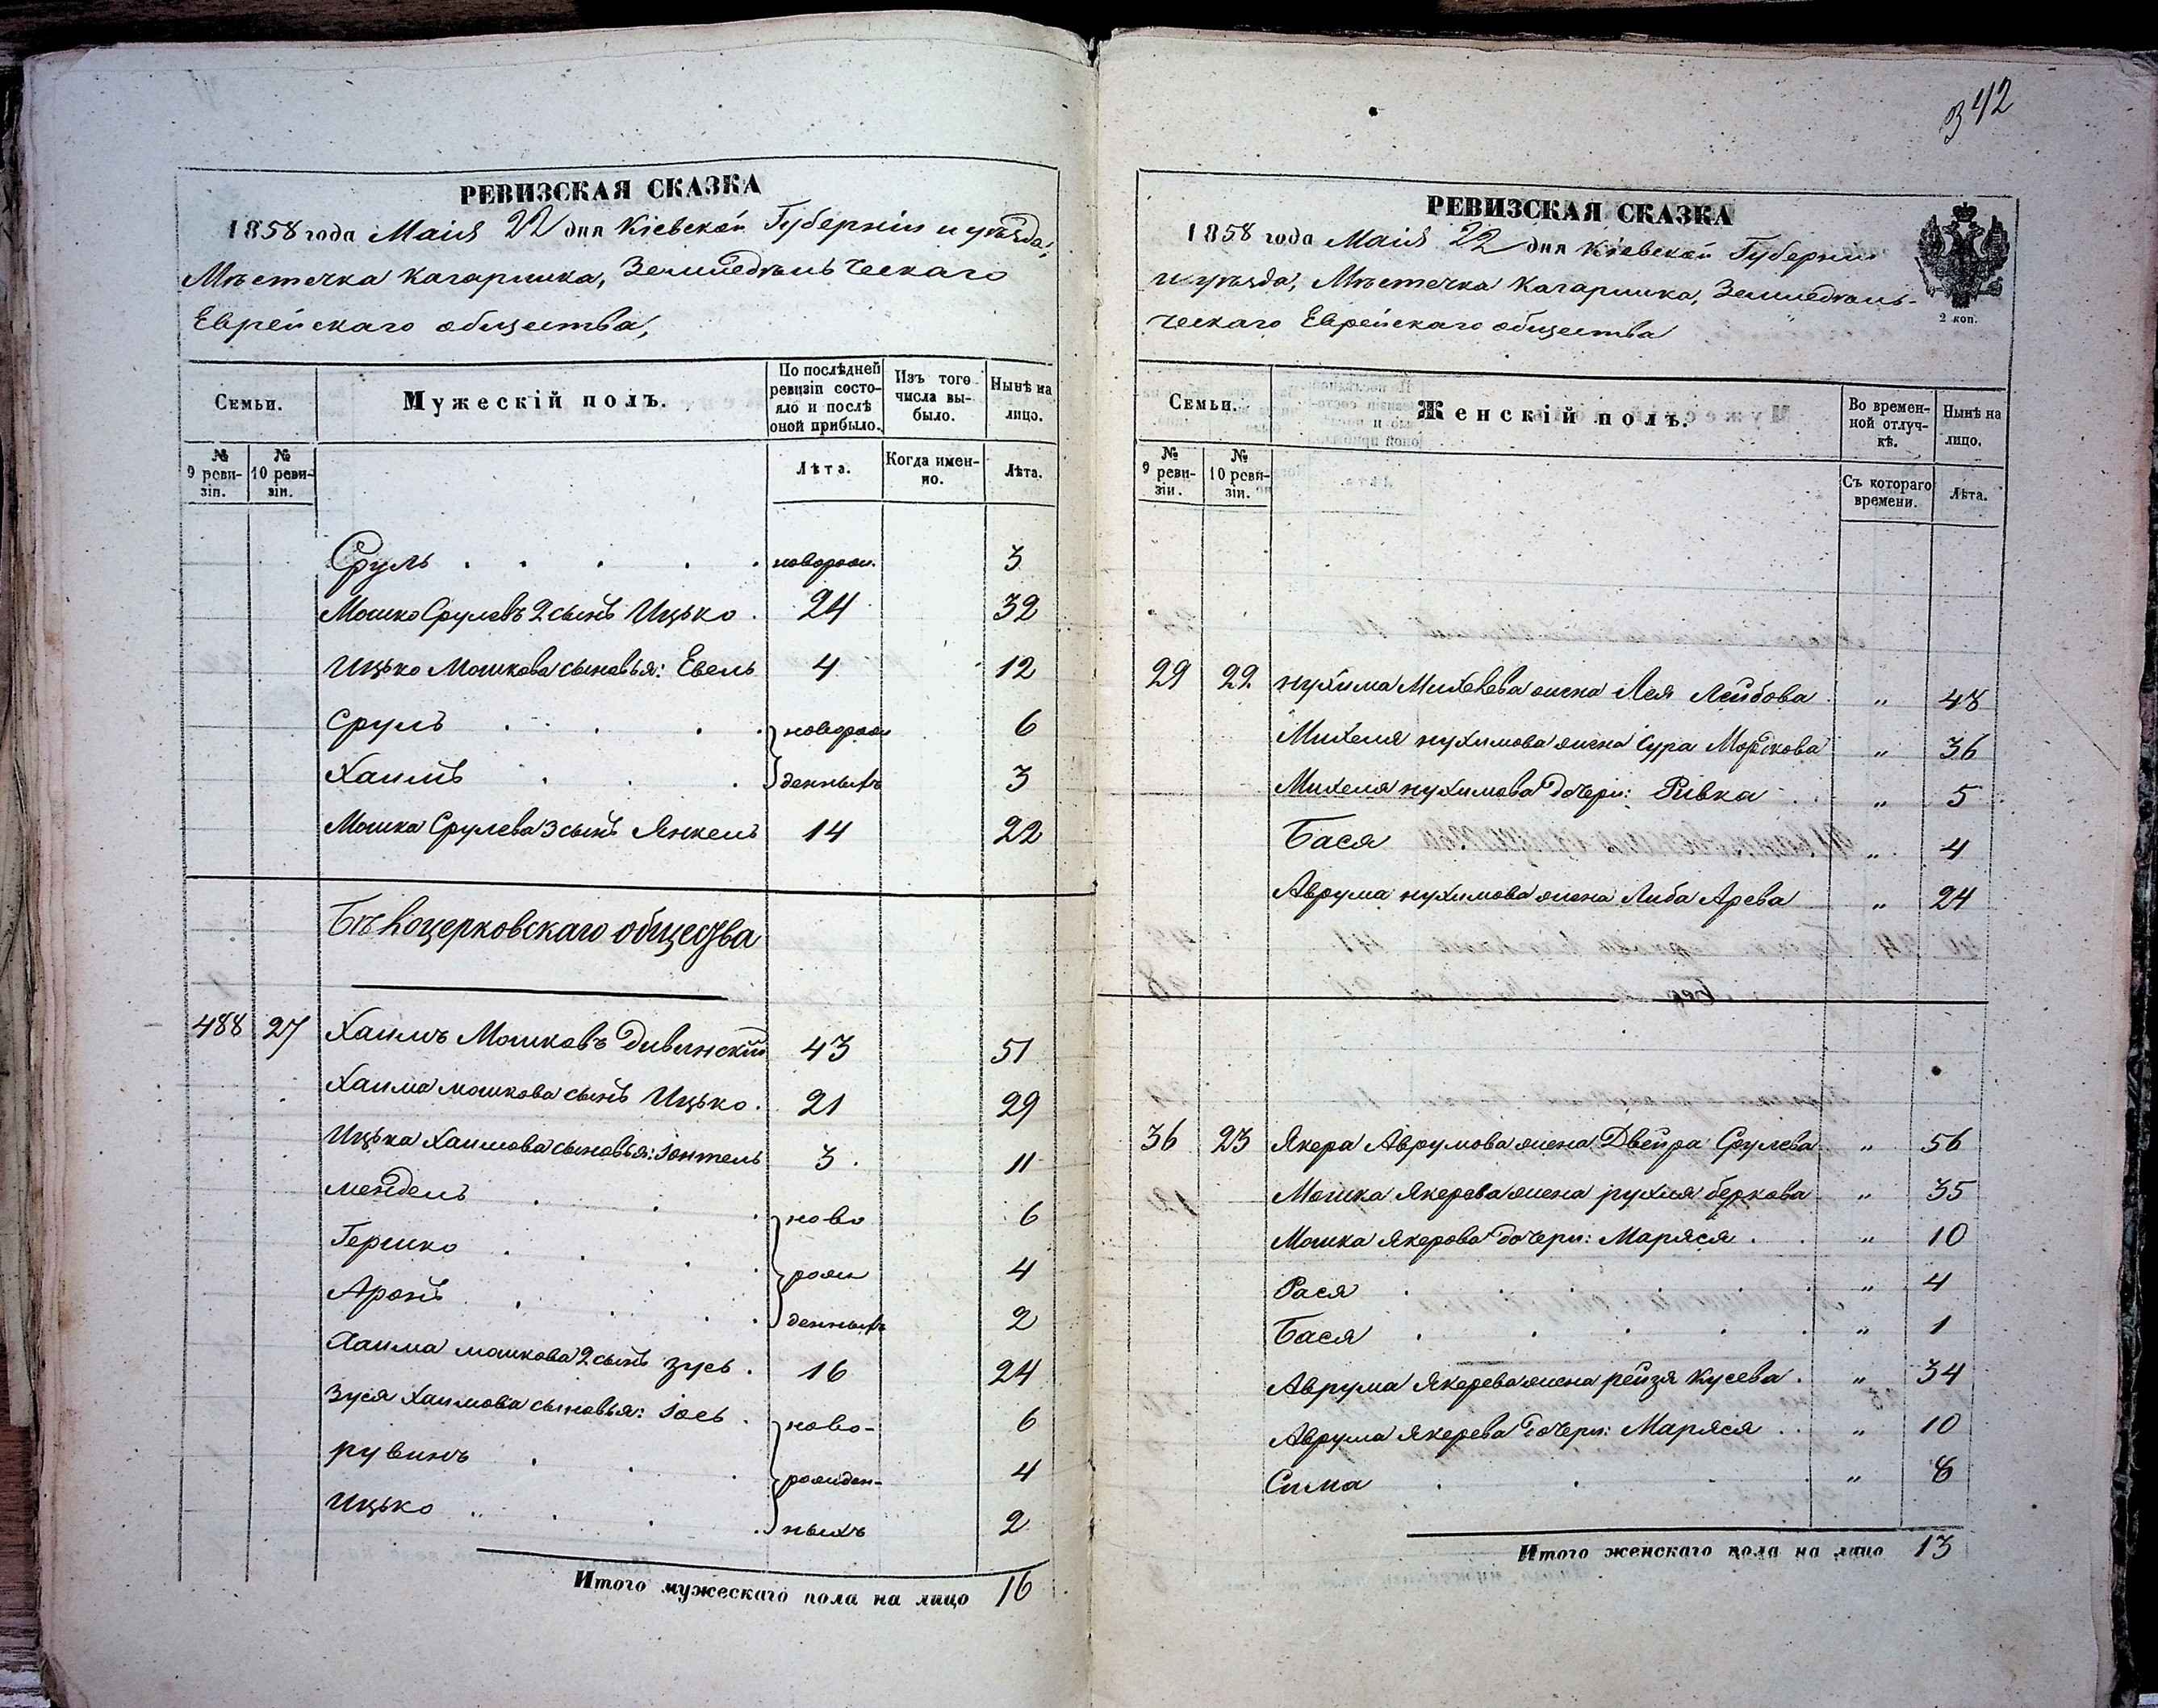 РЕВИЗСКАЯ СКАЗКА
1858 года Маія 22 дня Кіевской Губерніи и уѣзда,
Мѣстечка Кагарлика, Земледѣльческаго
Еврейскаго общества,
Семьи.
Мужескій полъ.
По послѣдней ревизіи состояло и послѣ оной прибыло.
Изъ того числа выбыло.
Нынѣ на лицо.
№ 9 ревизіи.
№ 10 ревизіи.
Лѣта.
Когда именно.
Лѣта.
Сруль . . . . . новорож. 3
Мошко Срулевъ 2 сынъ Ицько . 24 32
Ицько Мошкова сыновья: Евель 4 12
Сруль . . . . новорож 6
Хаимъ . . . денныхъ 3
Мошка Срулева 3 сынъ Янкель 14 22
Бѣлоцерковскаго общества
488 27 Хаимъ Мошковъ Дивинскій 43 51
Хаима мошкова сынъ Ицько . 21 29
Ицька Хаимова сыновья: Іонтель 3 . 11
мендель . . . ново 6
Гершко . . . рож 4
Аронъ . . . денныхъ 2
Хаима мошкова 2 сынъ зусь . 16 24
Зуся Хаимова сыновья: Іось . ново- 6
рувинъ . . . рожден- 4
Ицько . . . . ныхъ 2
Итого мужескаго пола на лицо 16
342
РЕВИЗСКАЯ СКАЗКА
1858 года Маія 22 дня Кіевской Губерніи
и уѣзда, Мѣстечка Кагарлика, Земледѣль-
ческаго Еврейскаго общества
2 коп.
Семьи.
Женскій полъ.
Во временной отлучкѣ.
Нынѣ на лицо.
№ 9 ревизіи.
№ 10 ревизіи.
Съ котораго времени.
Лѣта.
29 22 нухима Михелева жена Лея Лейбова . „ 48
Михеля нухимова жена Сура Мордкова „ 36
Михеля нухимова дочери: Ривка . . „ 5
Бася „ 4
Аврума нухимова жена Либа Арева „ 24
36 23 Якера Аврумова жена Двейра Срулева „ 56
Мошка Якерова жена рухля беркова „ 35
Мошка Якерова дочери: Маряся . . „ 10
Рася . . . . . . „ 4
Бася . . . . . „ 1
Аврума Якерева жена рейзя Кусева . „ 34
Аврума Якерева дочери: Маряся . . „ 10
Сима . . . . „ 8
Итого женскаго пола на лицо 13